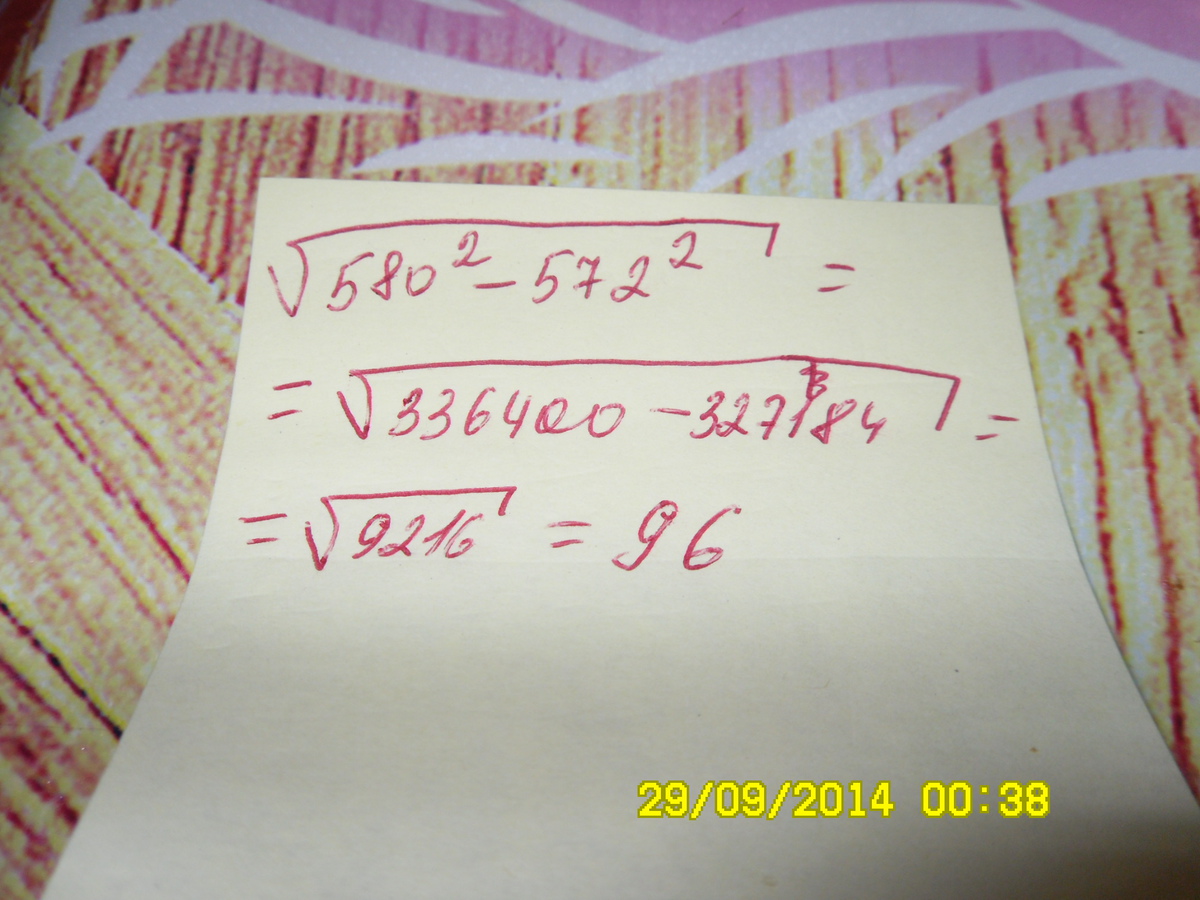 √580² - 572² =
= √336400 - 327184 =
= √9216 = 96
29/09/2014 00:38